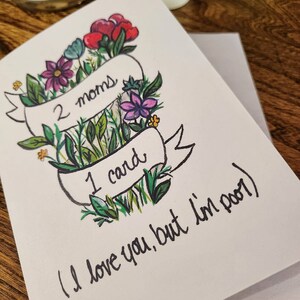 2 moms,
1 card
(I love you, but I'm poor)